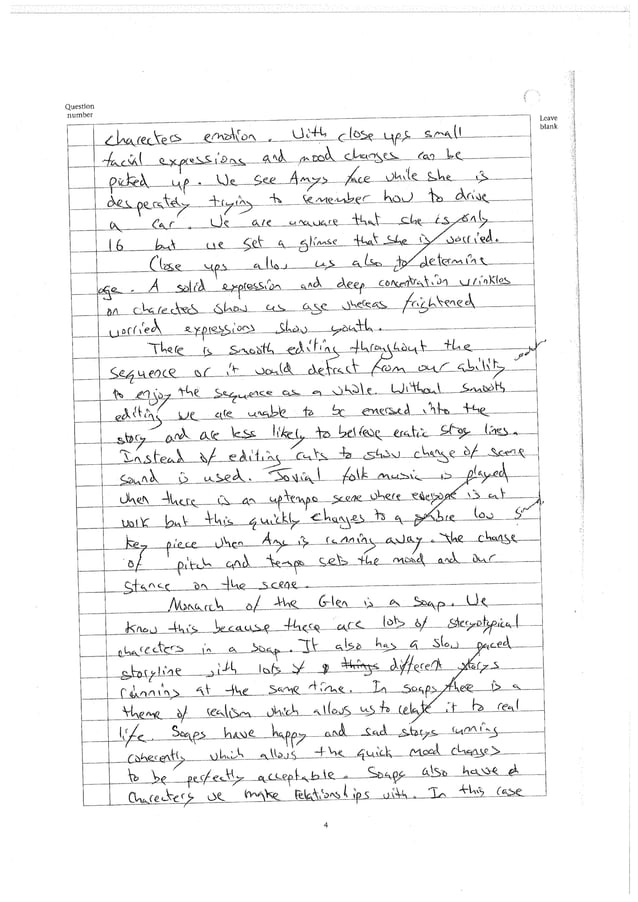 Question
number
Leave
blank
charecters emotion. With close ups small
facial expressions and mood changes can be
picked up. We see Amys face while she is
desperately trying to remember how to drive
a car. We are unaware that she is only
16 but we get a glimse that she is worried.
Close ups allow us also to determine
age. A solid expression and deep concentration wrinkles
on charecters show us age whereas frightened
worried expressions show youth.
There is smooth editing throughout the
sequence or it would detract from our ability
to enjoy the sequence as a whole. Without smooth
editing we are unable to be emersed into the
story and are less likely to believe eratic story lines.
Instead of editing cuts to show change of scene
sound is used. Jovial folk music is played
when there is an uptempo scene where everyone is at
work but this quickly changes to a low
key piece when Amy is running away. The change
of pitch and tempo sets the mood and our
stance on the scene.
Monarch of the Glen is a soap. We
know this because there are lots of steryotypical
charecters in a soap. It also has a slow paced
storyline with lots of things different storys
running at the same time. In soaps thee is a
theme of realism which allows us to relate it to real
life. Soaps have happy and sad storys running
coherently which allows the quick mood changes
to be perfectly acceptable. Soaps also have
Charecters we make relationships with. In this case
4